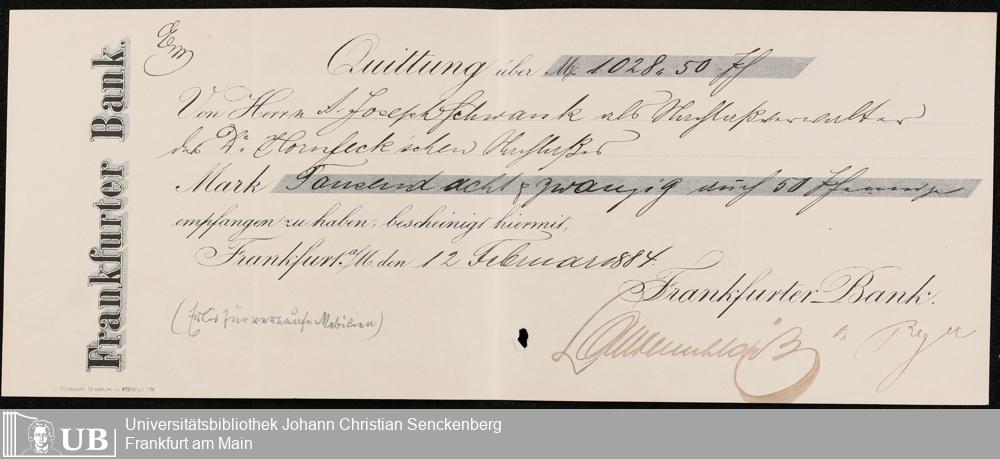 Frankfurter Bank.
Quittung über M 1028 „ 50 Pf
Von Herrn A. Joseph Schwank als Nachlaßverwalter
des Dr. Hornfeck'schen Nachlaßes
Mark Tausend acht & zwanzig auch 50 Pfennige
empfangen zu haben, bescheinigt hiermit,
Frankfurt a/M. den 12 Februar 1884
Frankfurter Bank.
(Erlös für verkaufte Mobilien)
UB
Universitätsbibliothek Johann Christian Senckenberg
Frankfurt am Main